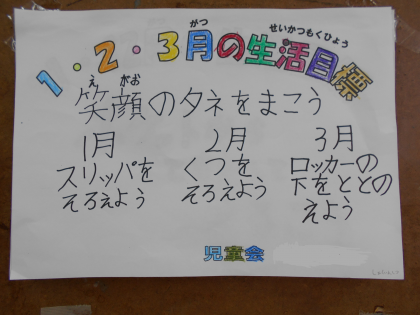 1・2・3月の生活目標
がつ
せいかつもくひょう
え
がお
笑顔のタネをまこう
1月
スリッパを
そろえよう
2月
くつを
そろえよう
3月
ロッカーの
下をととの
えよう
児童会